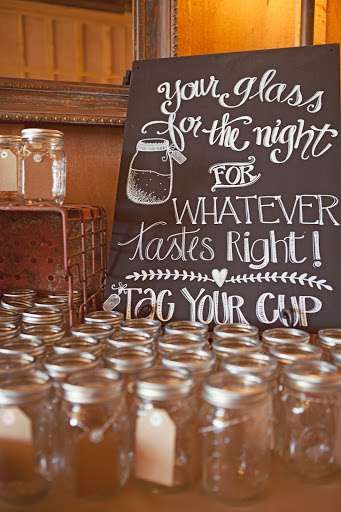 Your glass
for the night
FOR
WHATEVER
tastes Right!
TAG YOUR CUP